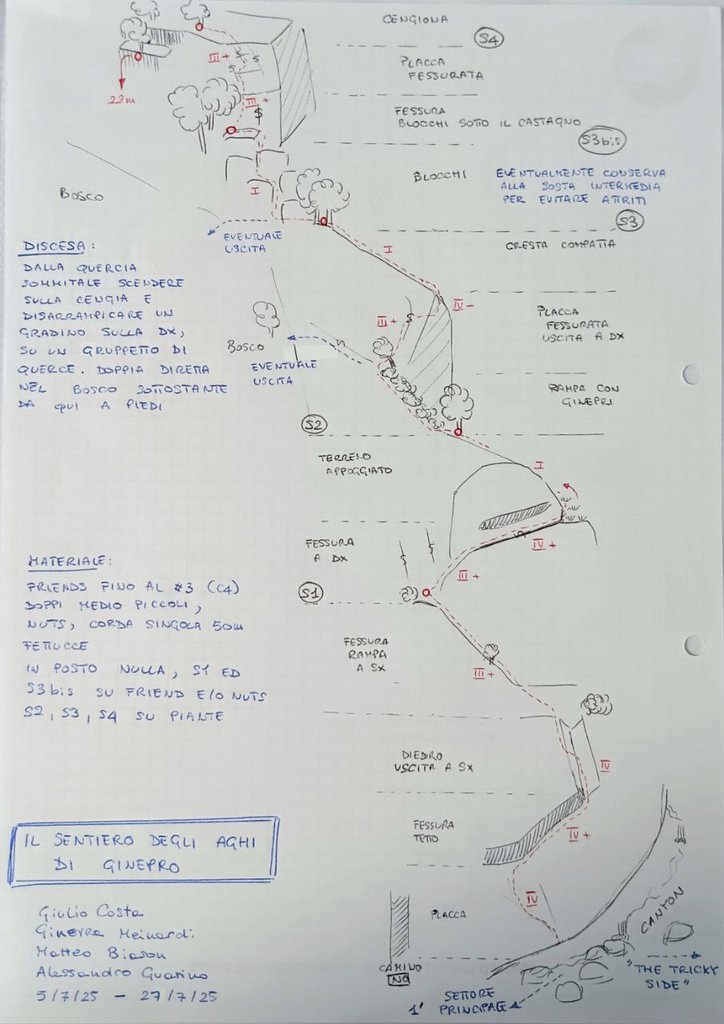 CENGIONA
S4
III+
PLACCA
FESSURATA
22m
III+
FESSURA
BLOCCHI SOTTO IL CASTAGNO
S3bis
BLOCCHI
EVENTUALMENTE CONSERVA
ALLA SOSTA INTERMEDIA
PER EVITARE ATTRITI
I
BOSCO
S3
EVENTUALE
USCITA
CRESTA COMPATTA
I
DISCESA:
DALLA QUERCIA
SOMMITALE SCENDERE
SULLA CENGIA E
DISARRAMPICARE UN
GRADINO SULLA DX,
SU UN GRUPPETTO DI
QUERCE. DOPPIA DIRETTA
NEL BOSCO SOTTOSTANTE
DA QUI A PIEDI
IV-
III+
PLACCA
FESSURATA
USCITA A DX
BOSCO
EVENTUALE
USCITA
RAMPA CON
GINEPRI
S2
TERRENO
APPOGGIATO
I
FESSURA
A DX
IV+
III+
MATERIALE:
FRIENDS FINO AL #3 (C4)
DOPPI MEDIO PICCOLI,
NUTS, CORDA SINGOLA 50m
FETTUCCE
IN POSTO NULLA, S1 ED
S3bis SU FRIEND E/O NUTS
S2, S3, S4 SU PIANTE
S1
FESSURA
RAMPA
A SX
III+
DIEDRO
USCITA A SX
IV
FESSURA
TETTO
IV+
IL SENTIERO DEGLI AGHI
DI GINEPRO
IV
PLACCA
CAMINO
NO
CANYON
"THE TRICKY
SIDE"
SETTORE
1' PRINCIPALE
Giulio Costa
Ginevra Meinardi
Matteo Biason
Alessandro Guarino
5/7/25 - 27/7/25